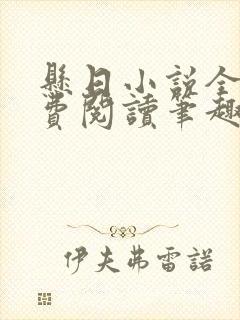 懸日小說全
費閱讀筆趣
伊夫弗雷諾